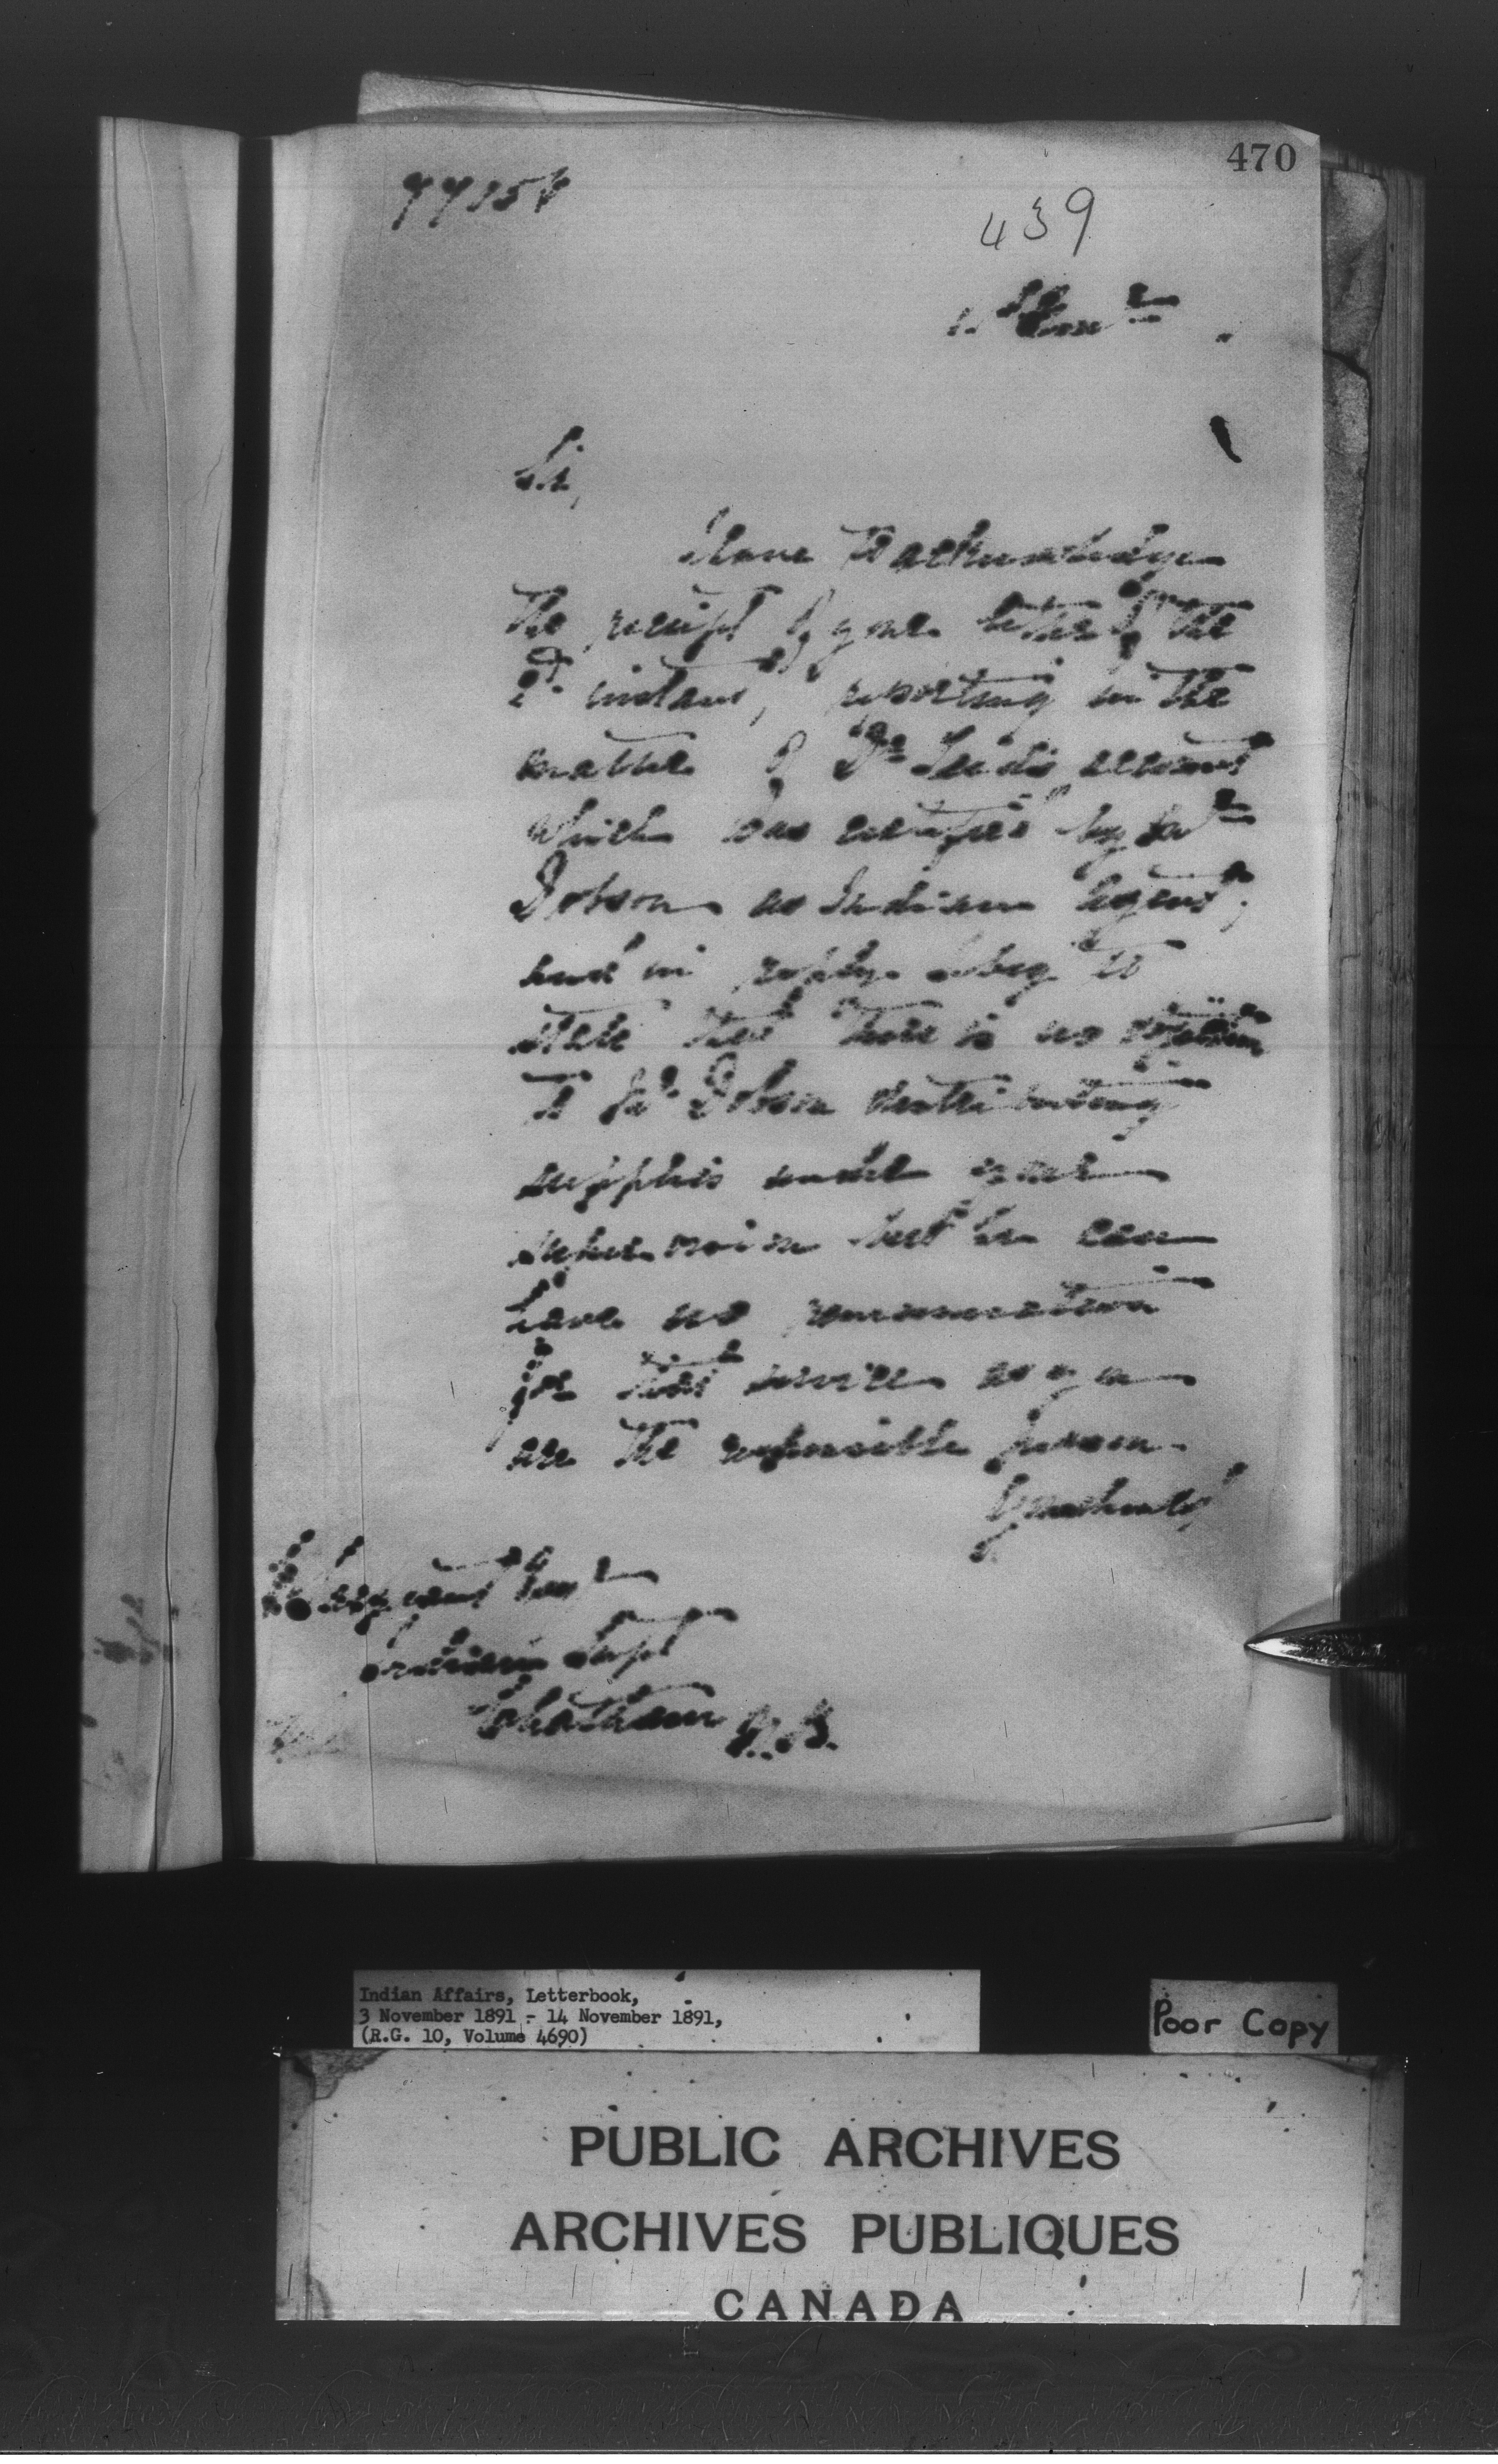 470
439
Sir,
I have to acknowledge
the receipt of your letter of the
2d instant, reporting in the
matter of Dr account
which was certified by
Dobson as Indian Agent,
and in reply I beg to
state that there is no objection
to Dobson distributing
supplies under your
supervision but he can
have no remuneration
for that service as you
are the responsible person.
Your obedt
Indian Supt
Chatham N.B.
Indian Affairs, Letterbook,
3 November 1891 - 14 November 1891,
(R.G. 10, Volume 4690)
Poor Copy
PUBLIC ARCHIVES
ARCHIVES PUBLIQUES
CANADA